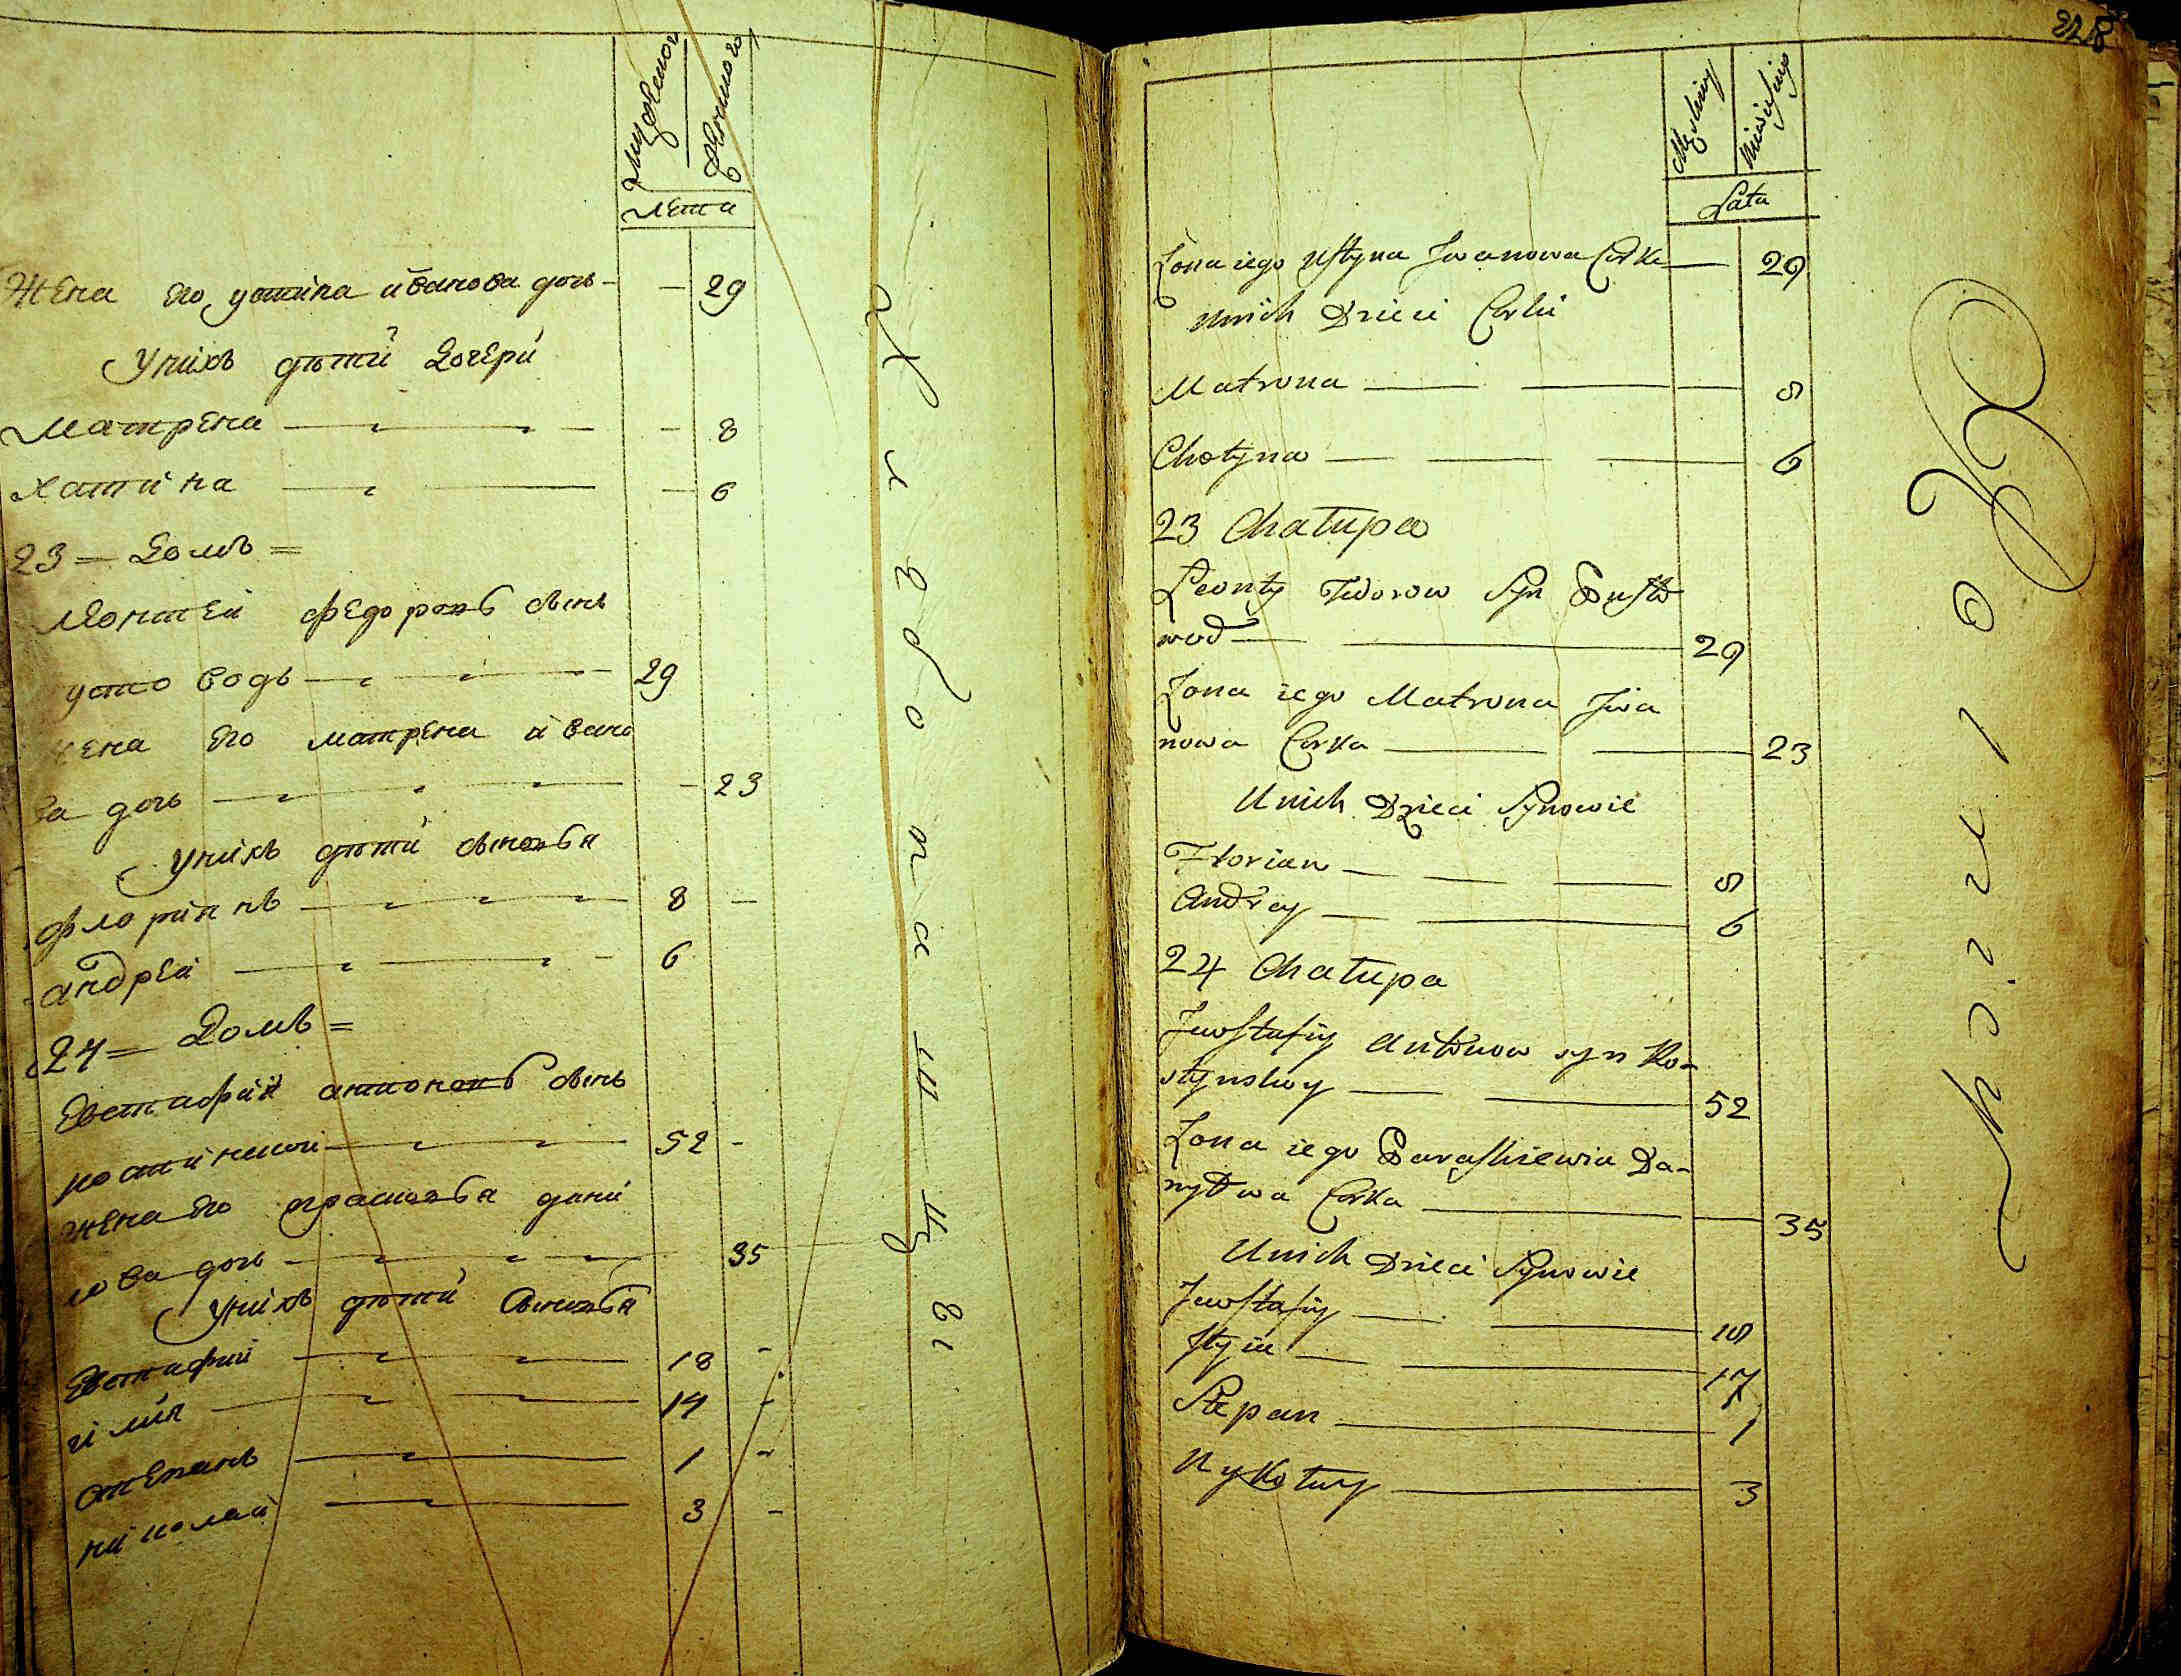 Лета
Жена его устина иванова дочь 29
Унихъ дѣти дочери
Матрена 8
Хатина 6
23 = Домъ =
Леонтей федоровъ сынъ
устоводъ 29
жена его матрена ивано
ва дочь 23
Унихъ дѣти сыновья
флориянъ 8 -
андрей 6
24 = Домъ =
Евстафий антоновъ сынъ
52 -
жена его дани
лова дочь 35
Унихъ дѣти сыновья
Евстафий 18 -
14 -
степанъ 1 -
николай 3 -
Lata
Żona iego Ustyna Jwanowa Corka 29
Unich Dzieci Corki
Matrona 8
Chotyna 6
23 Chałupa
Leonty Fedorow Syn Pusto
wod 29
Żona iego Matrona Jwa
nowa Corka 23
Unich Dzieci Synowie
Florian 8
Andrey 6
24 Chałupa
Jewstafiy Antonow syn Ko-
stynskoy 52
Żona iego Paraskiewia Da-
nyłowa Corka 35
Unich Dzieci Synowie
Jewstafiy 18
17
Stepan 1
Nykołay 3